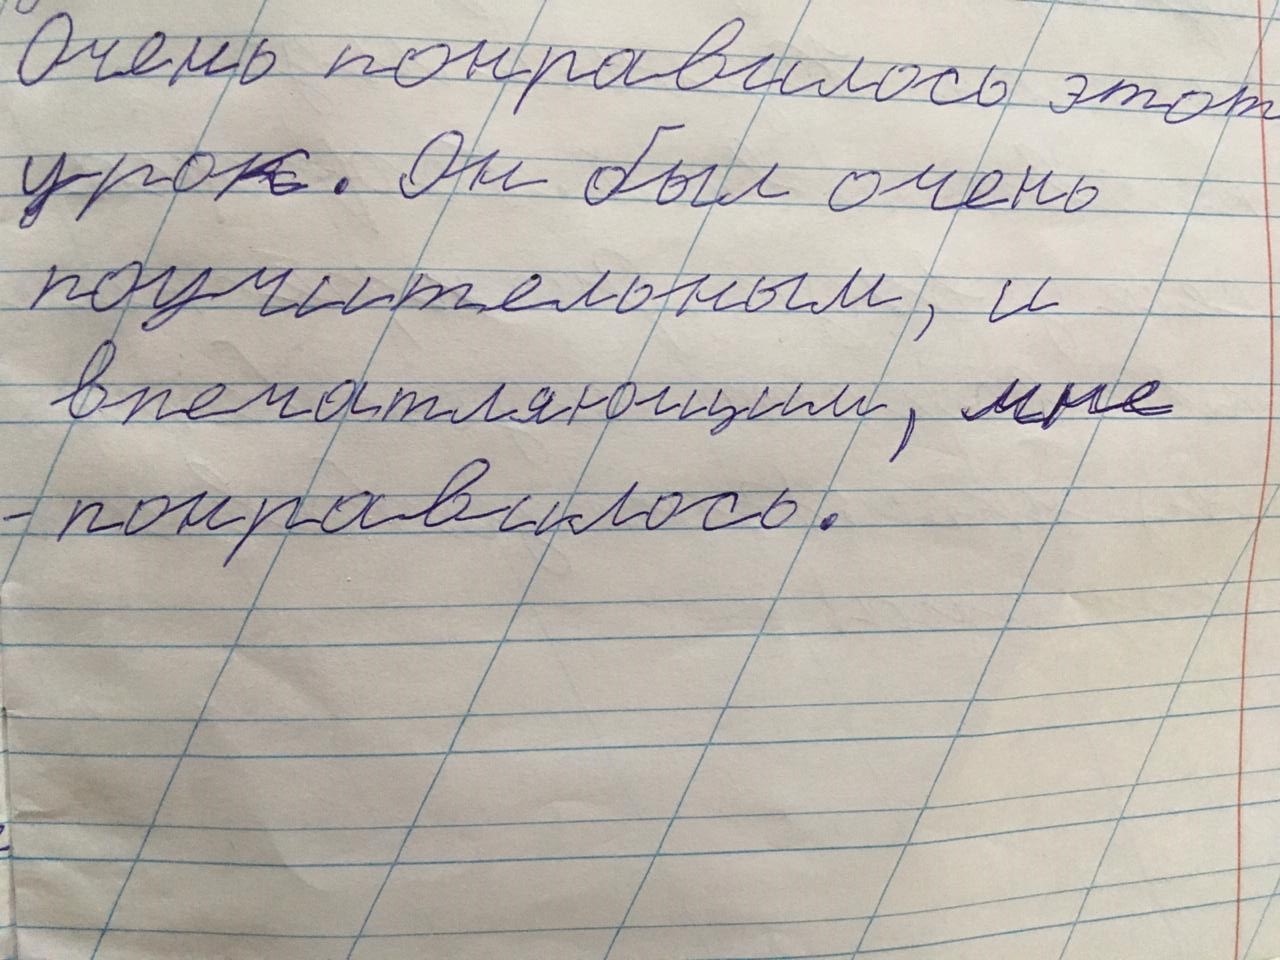 Очень понравилось этот
урок. Он был очень
поучительным, и
впечатляющим, мне
- понравилось.